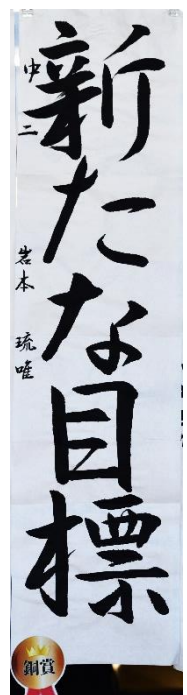 新たな目標
中二 岩本 琉唯
銅賞